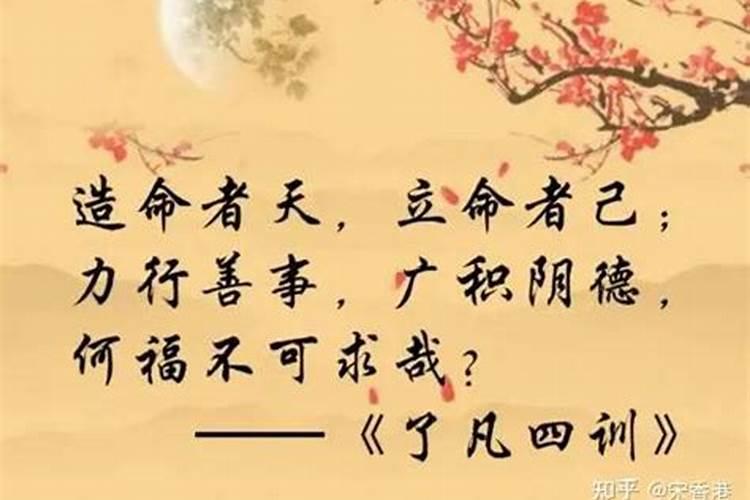 造命者天，立命者己；
力行善事，广积阴德，
何福不可求哉？
——《了凡四训》
知乎 @宋香港